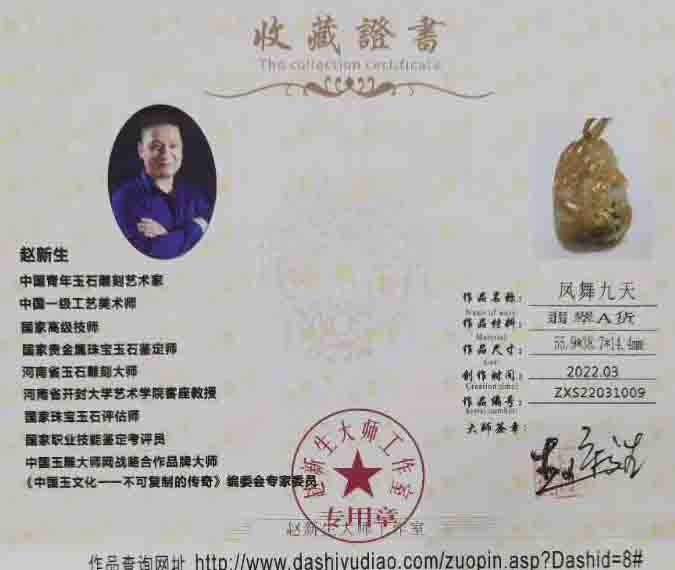 收藏證書
The collection certificate
赵新生
中国青年玉石雕刻艺术家
中国一级工艺美术师
国家高级技师
国家贵金属珠宝玉石鉴定师
河南省玉石雕刻大师
河南省开封大学艺术学院客座教授
国家珠宝玉石评估师
国家职业技能鉴定考评员
中国玉雕大师网战略合作品牌大师
《中国玉文化——不可复制的传奇》编委会专家委员
作品名称：凤舞九天
Name of work
作品材料：翡翠A货
Material
作品尺寸：55.9*38.7*14.4mm
创作时间：2022.03
Creation time
作品编号：ZXS22031009
Serial number
大师签章：
赵新生大师工作室
专用章
赵新生大师工作室
作品查询网址 http://www.dashiyudiao.com/zuopin.asp?Dashid=8#